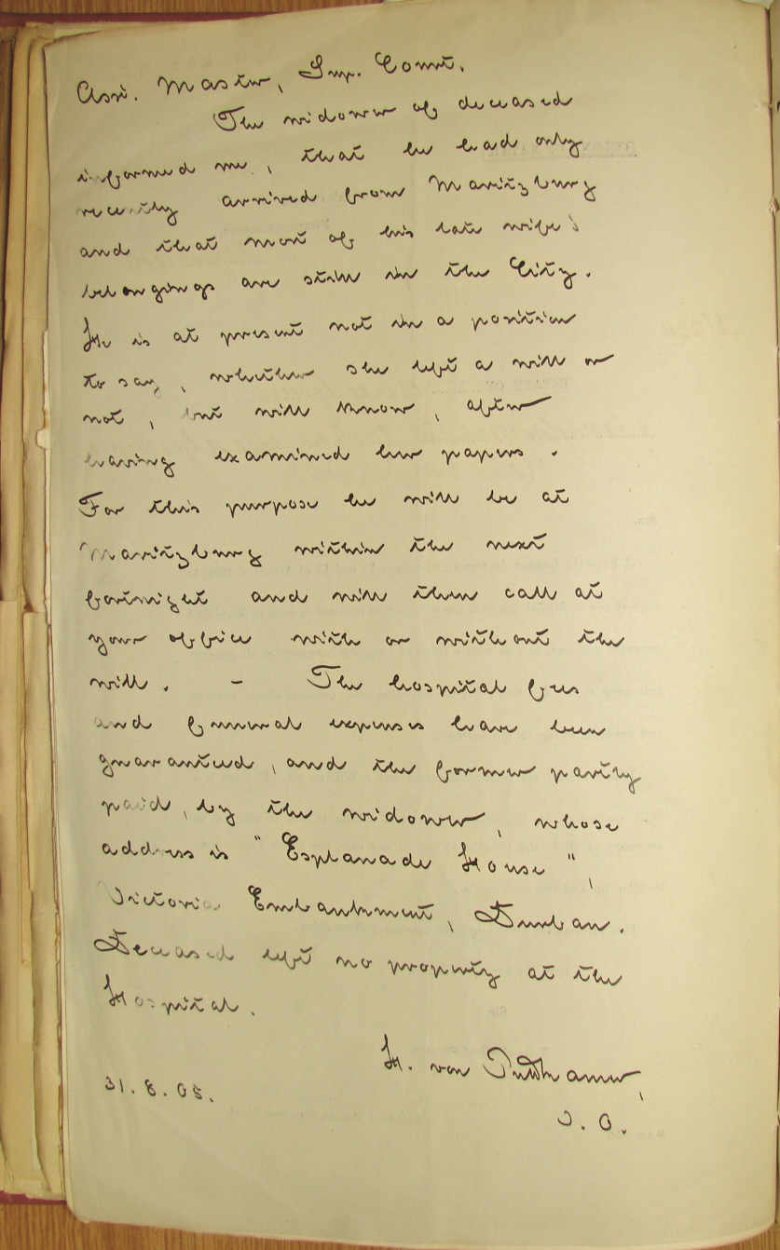 Asst. Master, Sup. Court.
The widower of deceased
informed me, that he had only
recently arrived from Maritzburg
and that most of his late wife's
belongings are still in the City.
He is at present not in a position
to say, whether she left a will or
not, but will know, after
having examined her papers.
For this purpose he will be at
Maritzburg within the next
fortnight and will then call at
your office with or without the
will. - The hospital fees
and funeral expenses have been
guaranteed, and the former partly
paid, by the widower, whose
address is "Esplanade House",
Victoria Embankment, Durban.
Deceased left no property at the
Hospital.
H. von Puttkamer,
31.8.05.
O.